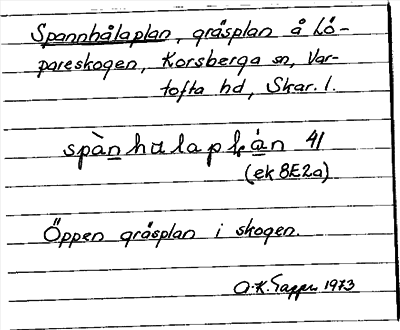 Spannhålaplan, gräsplan å Lö-
pareskogen, Korsberga sn, Var-
tofta hd, Skar. l.
spànhalaplán 41
(ek 8E2a)
Öppen gräsplan i skogen.
O.K. 1973